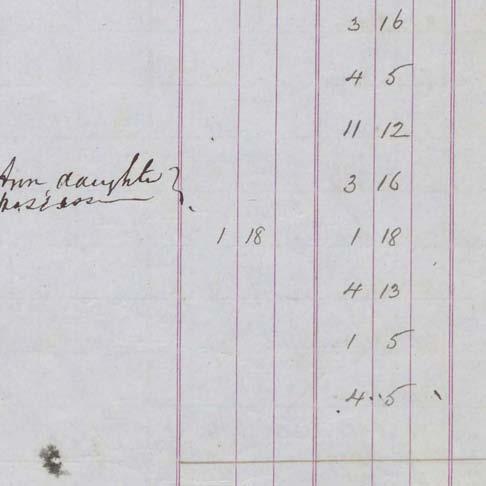 3 16
4 5
11 12
Ann daughter 3 16
possession
1 18 1 18
4 13
1 5
4 5